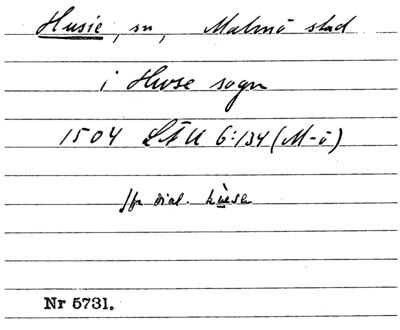 Husie, sn, Malmö stad
i Hwse sogn
1504 LÄU 6:134 (M-ö)
Jfr dial.
Nr 5731.